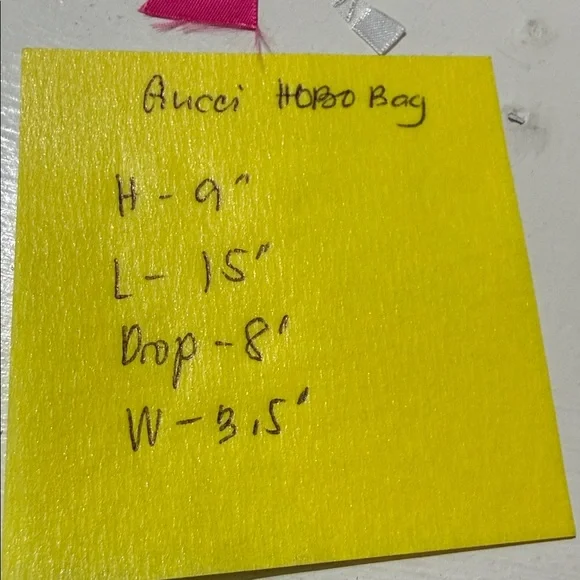 Gucci HOBO Bag
H - 9"
L - 15"
Drop - 8'
W - 3.5'